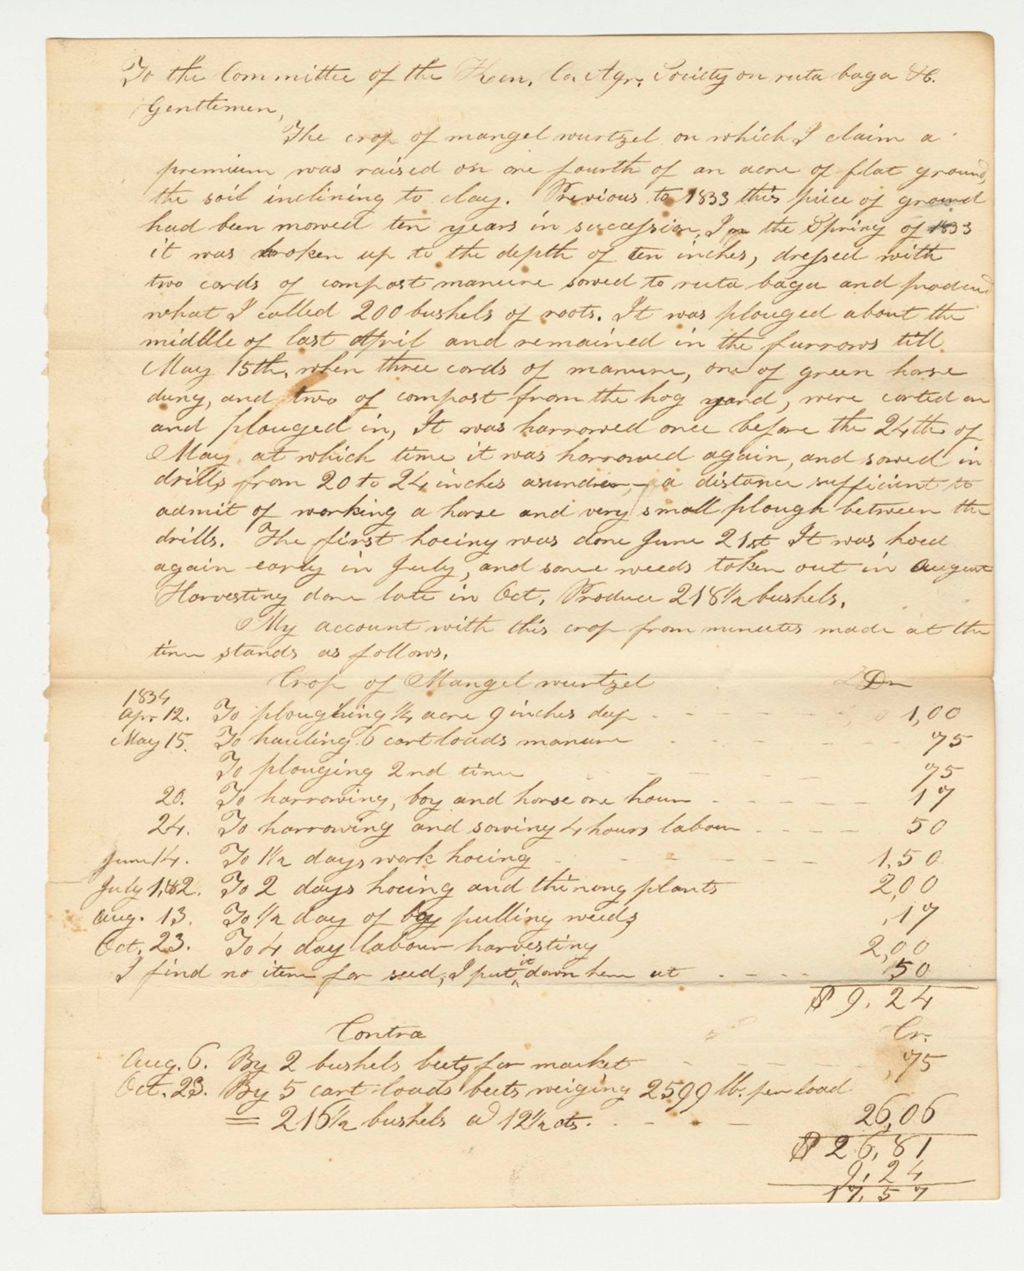 To the Committee of the Ken. Co. Agr. Society on ruta baga &c.
Gentlemen,
The crop of mangel wurtzel on which I claim a
premium was raised on one fourth of an acre of flat ground,
the soil inclining to clay. Previous to 1833 this piece of ground
had been mowed ten years in succession, In the Spring of 1833
it was broken up to the depth of ten inches, dressed with
two cords of compost manure sowed to ruta baga and produced
what I called 200 bushels of roots. It was plouged about the
middle of last April and remained in the furrows till
May 15th, when three cords of manure, one of green horse
dung, and two of compost from the hog yard, were carted on
and plouged in, It was harrowed once before the 24th of
May, at which time it was harrowed again, and sowed in
drills from 20 to 24 inches asunder, a distance sufficient to
admit of working a horse and very small plough between the
drills. The first hoeing was done June 21st It was hoed
again early in July, and some weeds taken out in August
Harvesting done late in Oct, Produce 218 1/2 bushels.
My account with this crop from minutes made at the
time stands as follows.
Crop of Mangel wurtzel Dr
1834
Apr. 12. To ploughing 1/4 acre 9 inches deep 1,00
May 15. To hauling 6 cart loads manure 75
To plouging 2nd time 75
20. To harrowing, boy and horse one hour 17
24. To harrowing and sowing 4 hours labour 50
June 14. To 1 1/2 days work hoeing 1,50
July 1,&2. To 2 days hoeing and thinong plants 2,00
Aug. 13. To 1/2 day of boy pulling weeds ,17
Oct. 23. To 4 day labour harvesting 2,00
I find no item for seed, I put it down here at 50
$ 9.24
Contra Cr.
Aug. 6. By 2 bushels beets for market ,75
Oct. 23. By 5 cart loads beets weiging 2599 lb. per load
= 216 1/2 bushels at 12 1/2 cts. 26,06
$ 26,81
9,24
17,57